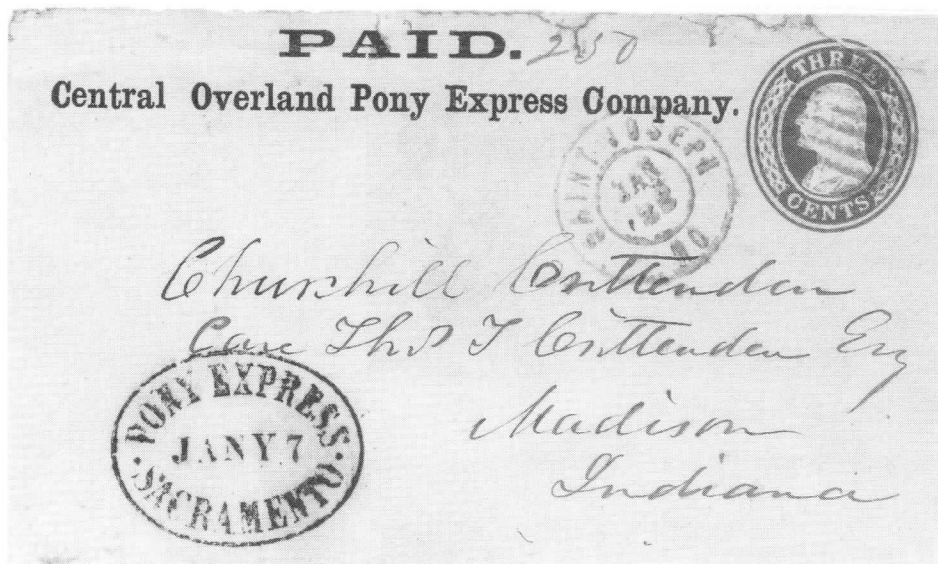 PAID. 250
Central Overland Pony Express Company.
THREE
CENTS
SAINT JOSEPH MO
JAN
Churchill Crittenden
Care Thos T Crittenden Esq
Madison
Indiana
PONY EXPRESS
JANY 7
SACRAMENTO